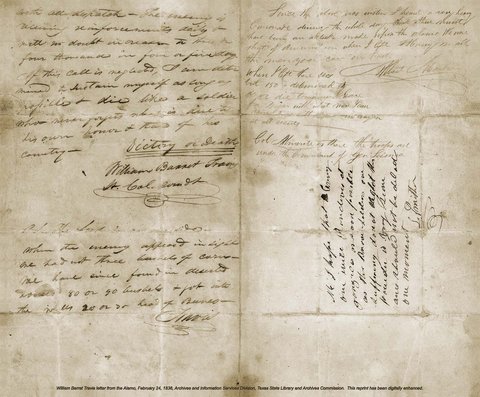 with all dispatch – The enemy is
receiving reinforcements daily &
will no doubt increase to three or
four thousand in four or five days.
If this call is neglected, I am deter
mined to sustain myself as long as
possible & die like a soldier
who never forgets what is due to
his own honor & that of his
country –
Victory or Death
William Barret Travis
Lt. Col. comdt
P.S. The Lord is on our side –
When the enemy appeared in sight
we had not three bushels of corn –
We have since found in deserted
houses 80 or 90 bushels & got into
the walls 20 or 30 head of Beeves –
Travis
Since the above was written I heard a very heavy
Cannonade during the whole day think there must
have been an attack made upon the alamo We were
short of Ammunition when I left Hurry on all
the men you can in haste
Albert Martin
When I left there was
but 150 determined to
do or die tomorrow I leave
for Bejar with what men I can
at all events
Col Almonte is there the troops are
under the Command of Gen
N b I hope that Every
one will Rendevu at
gonzales as soon poseble
as the Brave Soldiers are
suffering do not neglect the
powder is very scarce
and should not be delad
one moment
L Smither
William Barret Travis letter from the Alamo, February 24, 1836, Archives and Information Services Division, Texas State Library and Archives Commission. This reprint has been digitally enhanced.